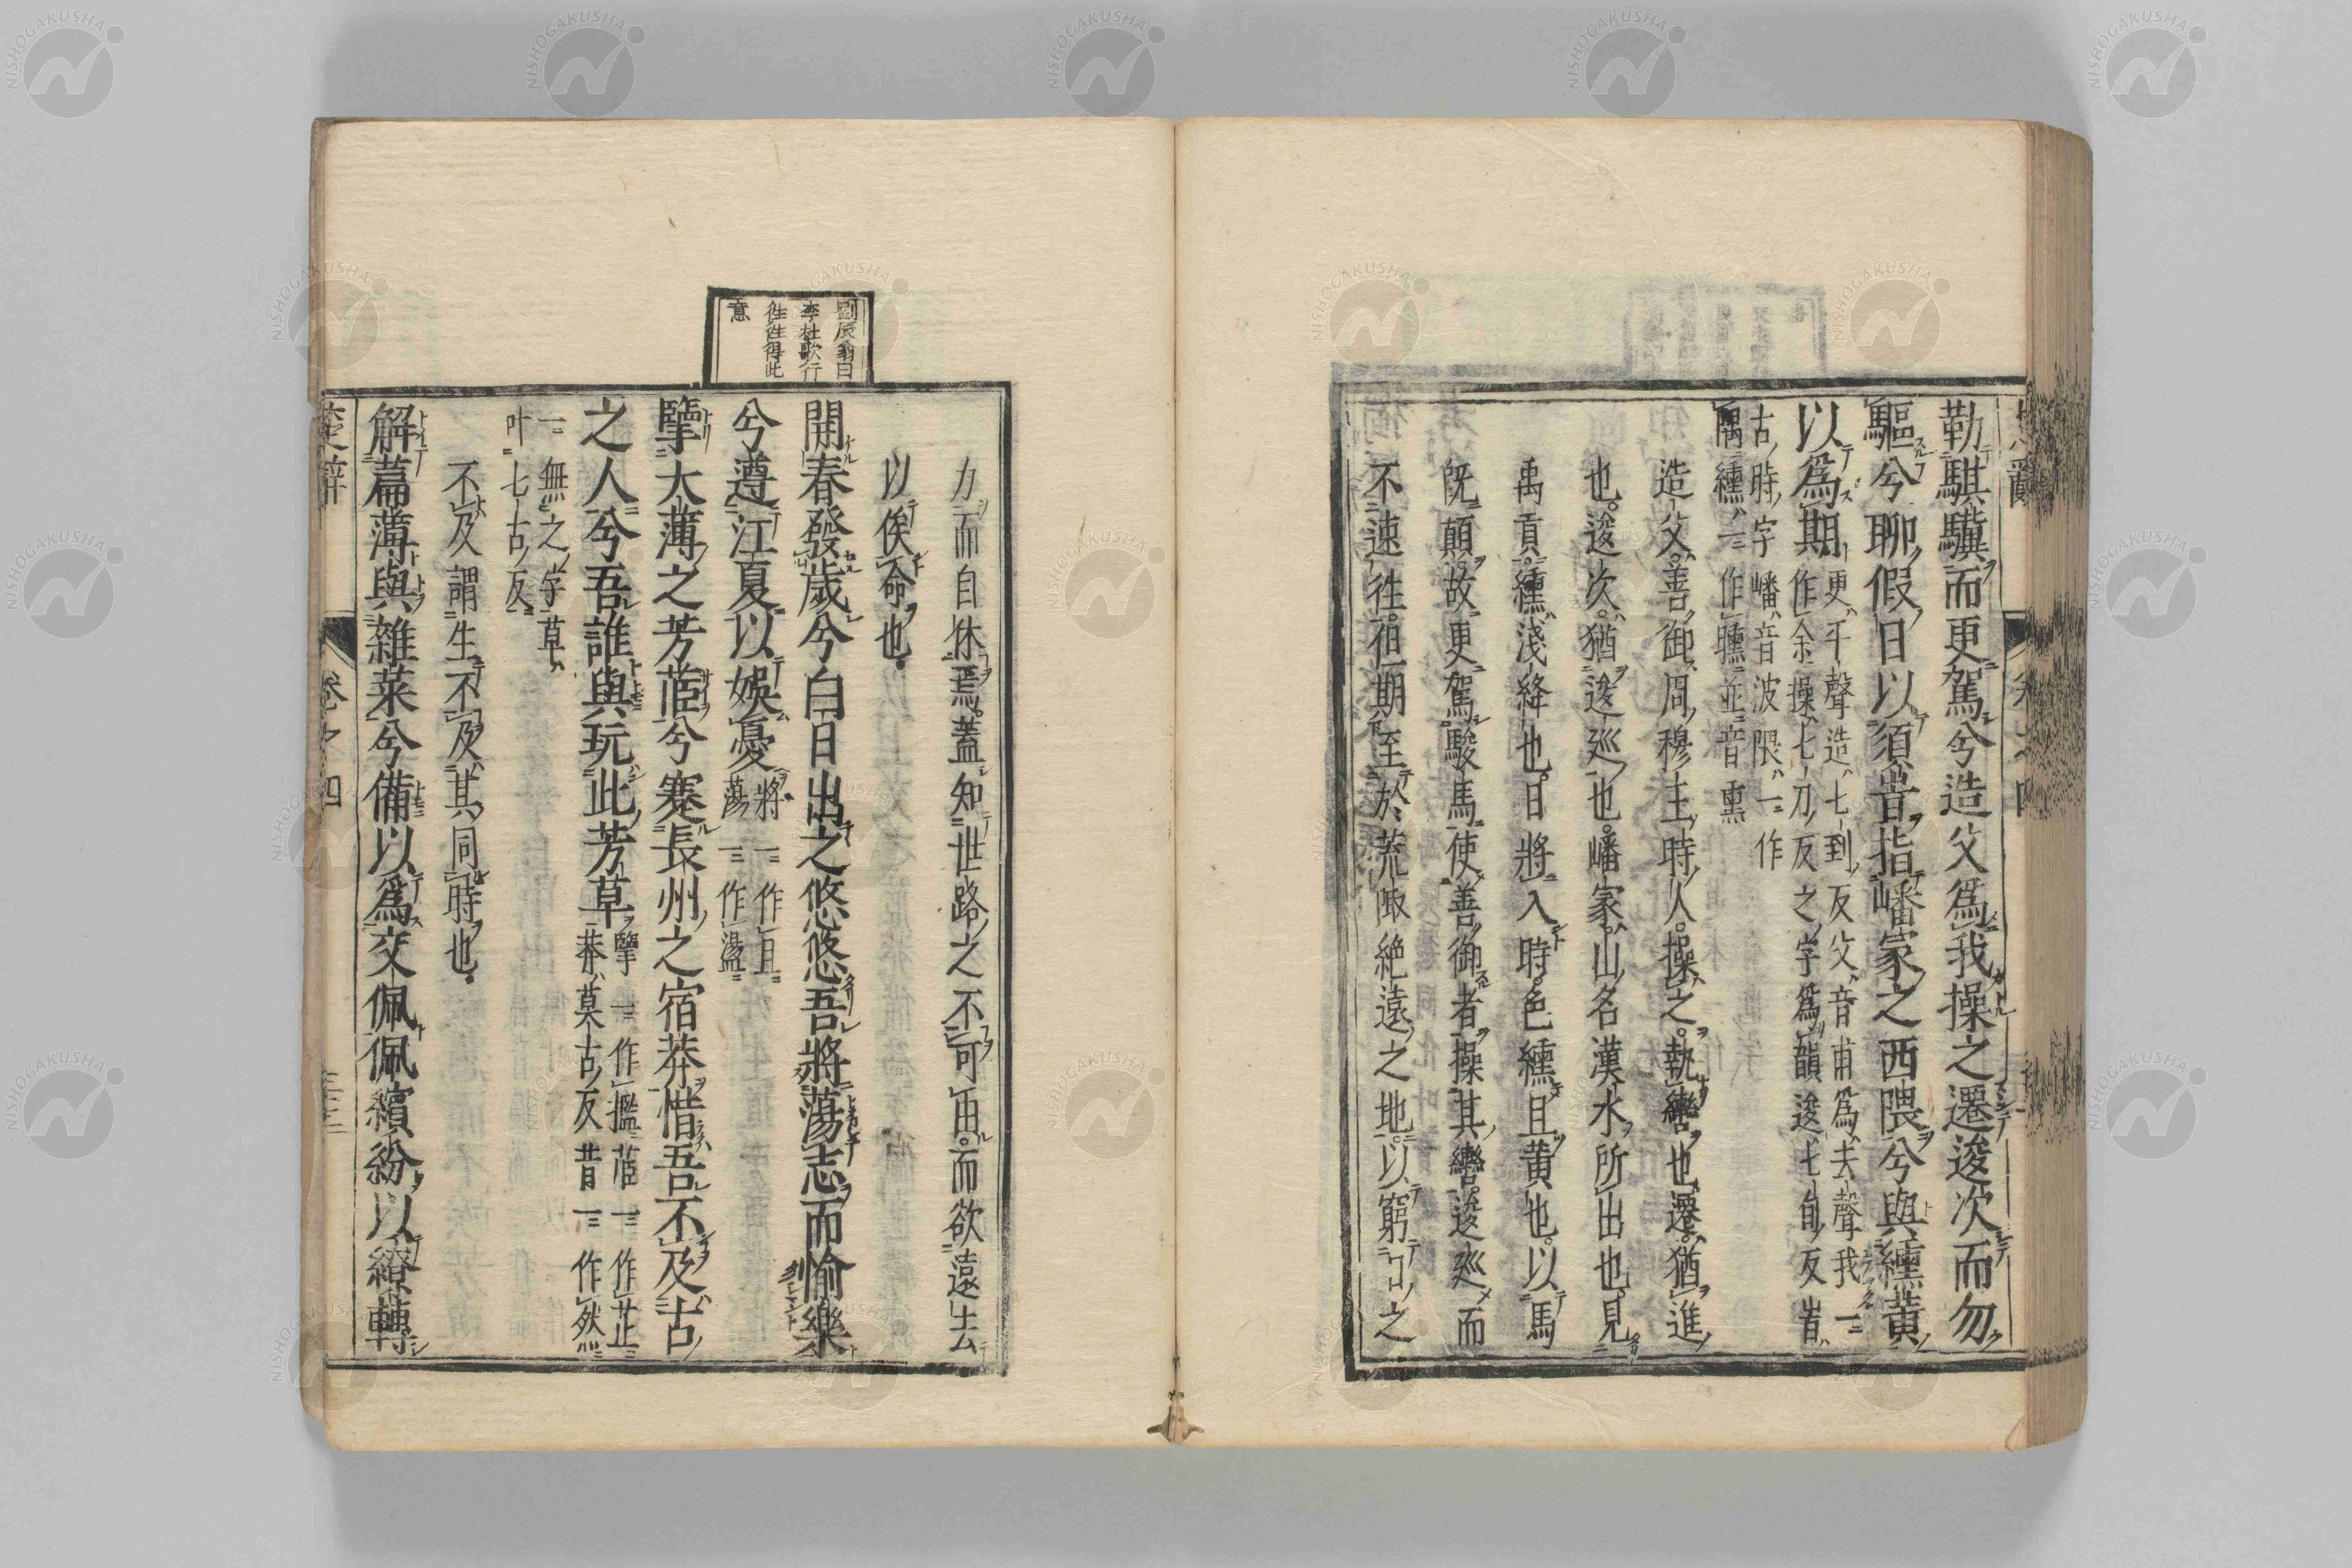 勒騏驥而更駕兮造父為我操之遷逡次而勿
驅兮聊假日以須旹指嶓冢之西隈兮與纁黃
以為期
更平聲造七到反父音甫為去聲我一
作余操七刀反之字為韻逡七旬反旹
古時字嶓音波隈一作
隅纁一作曛並音熏
造父善御周穆王時人操之執轡也遷猶進
也逡次猶逡巡也嶓冢山名漢水所出也見
禹貢纁淺絳也日將入時色纁且黃也以馬
既顛故更駕駿馬使善御者操其轡逡巡而
不速徃徂期至於荒陬絶遠之地以窮日之
卷之四
劉辰翁曰
李杜歌行
徃徃得此
意
力而自休焉蓋知世路之不可由而欲遠去
以俟命也
開春發歲兮白日出之悠悠吾將蕩志而愉樂
兮遵江夏以娛憂
將一作且
蕩一作盪
擥大薄之芳茝兮搴長州之宿莽惜吾不及古
之人兮吾誰與玩此芳草
擥一作攬茝一作芷
莽莫古反昔一作然
一無之字草
叶七古反
不及謂生不及其同時也
解萹薄與雜菜兮備以為交佩佩繽紛以繚轉
楚辭
卷之四
三十三
NISHOGAKUSHA